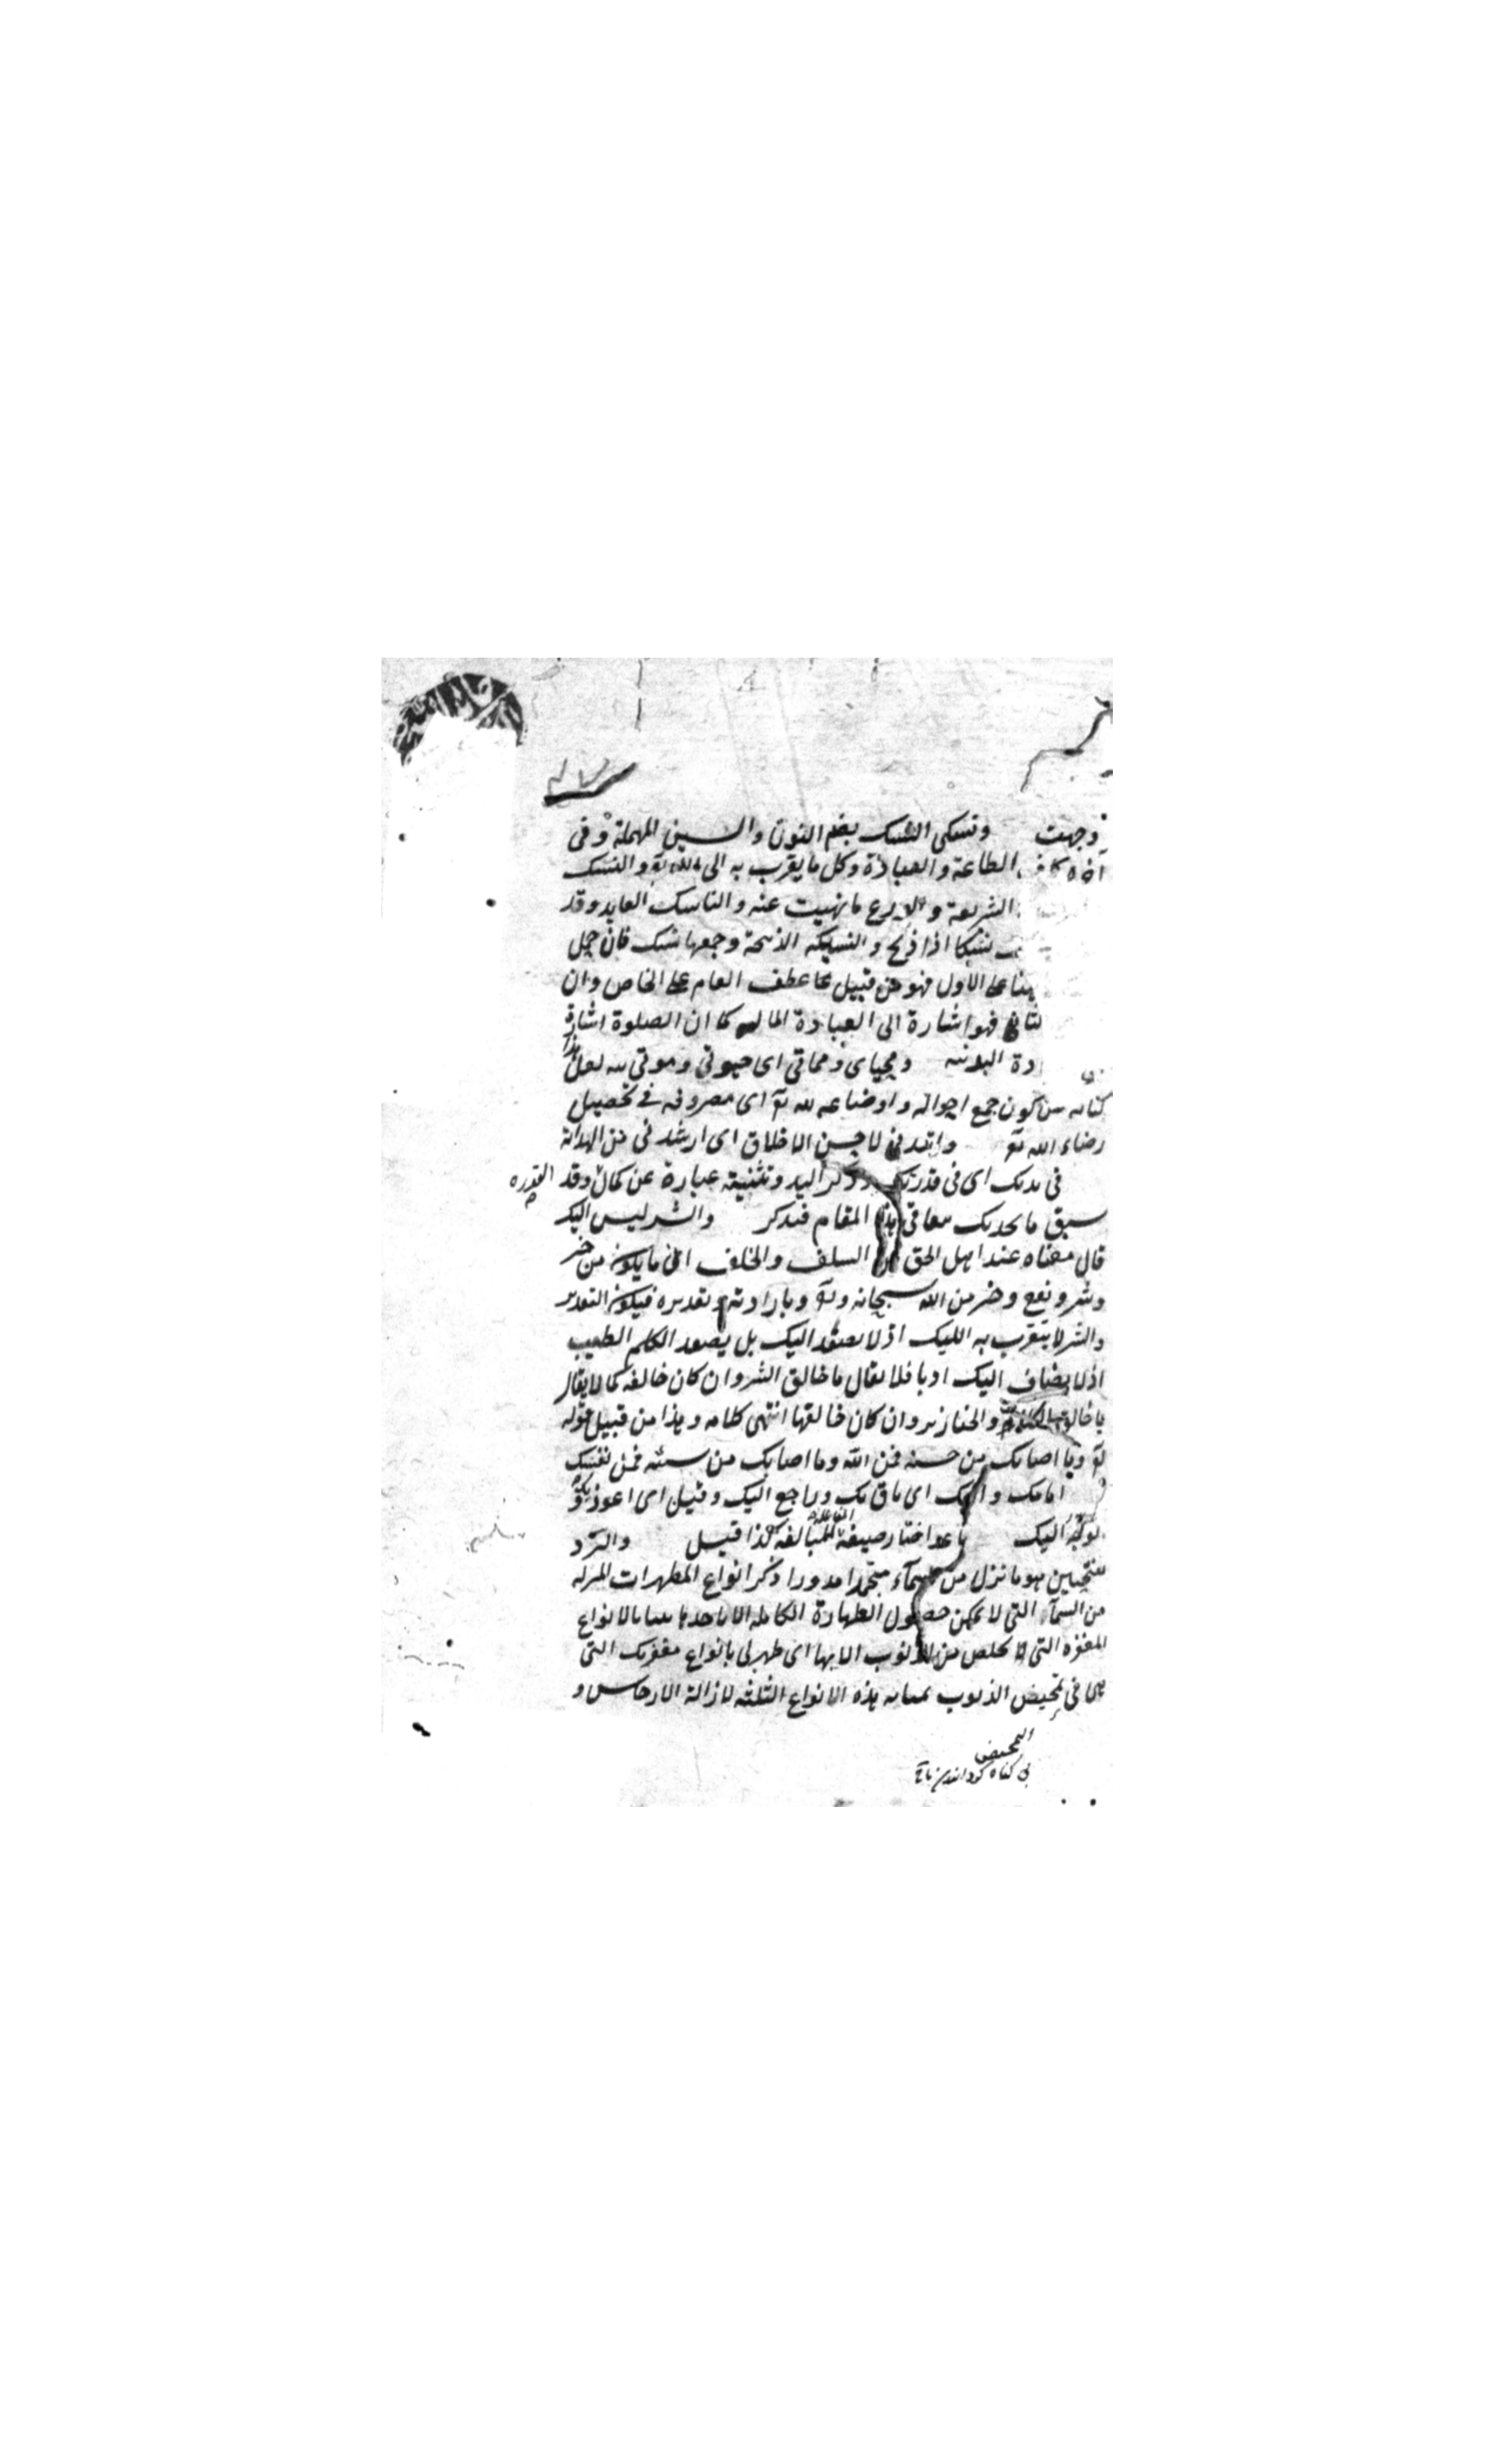 وجهت ونسكى النسك بضم النون والسين المهملة وفى
آخره كاف الطاعة والعبادة وكل ما يقرب به الى الله تع والنسك
الشريعة و ما نهيت عنه والناسك العابد وقد
نسكا اذا ذبح والنسيكه الذبيحة وجمعها نسك فان حمل
هنا على الاول فهو من قبيل عطف العام على الخاص وان
فهو اشارة الى العبادة الماليه كما ان الصلوة اشارة
دة البدنيه ومحياى ومماتى اى حيوتى وموتى لله لعل هذا
كنايه من كون جميع احواله واوضاعه لله تع اى مصروفه فى تحصيل
رضاء الله تع واهدنى لاحسن الاخلاق اى ارشدنى من الهداية
فى يديك اى فى قدرتك وذكر اليد وتثنيته عبارة عن كمال القدره وقد
سبق ما يجديك معنا فى هذا المقام فتذكر والشر ليس اليك
قال معناه عند اهل الحق من السلف والخلف ان ما يكون من خير
وشر ونفع وضر من الله سبحانه وتع وبارادته وتقديره فيكون التقدير
والشر لا يتقرب به اليك اذ لا يصعد اليك بل يصعد الكلم الطيب
اذ لا يضاف اليك ادبا فلا يقال يا خالق الشر وان كان خالقه كما لا يقال
يا خالق الكلاب والخنازير وان كان خالقها انتهى كلامه وهذا من قبيل قوله
تع وما اصابك من حسنه فمن الله وما اصابك من سيئه فمن نفسك
انا بك واليك اى باق بك وراجع اليك وقيل اى اعوذ بك و
توجه اليك باعد اختار صيغة المفاعله للمبالغه كذا قيل والبرد
بفتحتين هو ما نزل من السمآء متجمدا مدورا ذكر انواع المطهرات المنزله
من السمآء التى لا يمكن حصول الطهارة الكامله الا باحدها بيانا لانواع
المغفره التى لا يخلص من الذنوب الا بها اى طهرنى بانواع مغفرتك التى
هى فى تمحيض الذنوب بمثابه هذه الانواع الثلثه لازالة الارجاس و
التمحيض
بى كناه كردانيدن